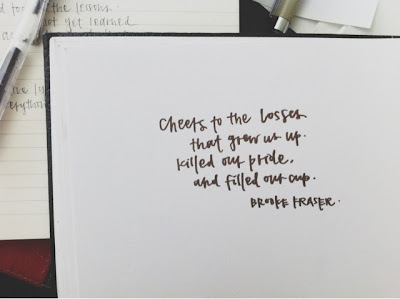 d for the lessons.
not yet learned
Cheers to the losses
that grew us up.
Killed our pride.
and filled our cup.
BROOKE FRASER.